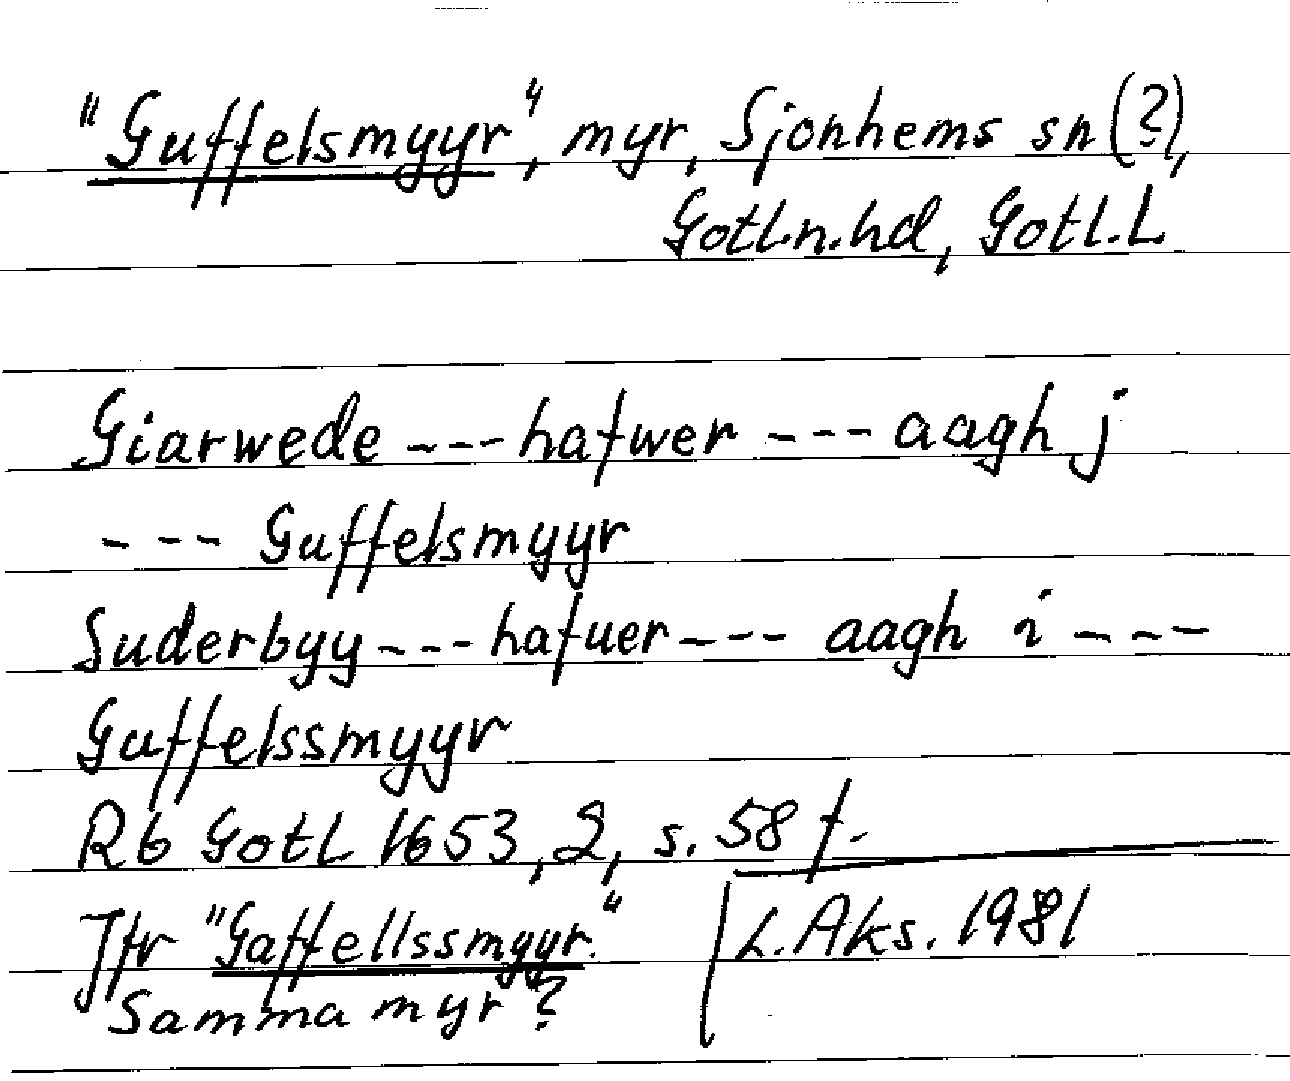 "Guffelsmyyr", myr, Sjonhems sn(?),
Gotl.n.hd, Gotl.L
Giarwede --- hafwer --- aagh j
--- Guffelsmyyr
Suderbyy --- hafuer --- aagh i ---
Guffelssmyyr
Rb Gotl 1653, 2, s. 58 f.
Jfr "Gaffellssmyyr."
Samma myr?
L. Aks. 1981